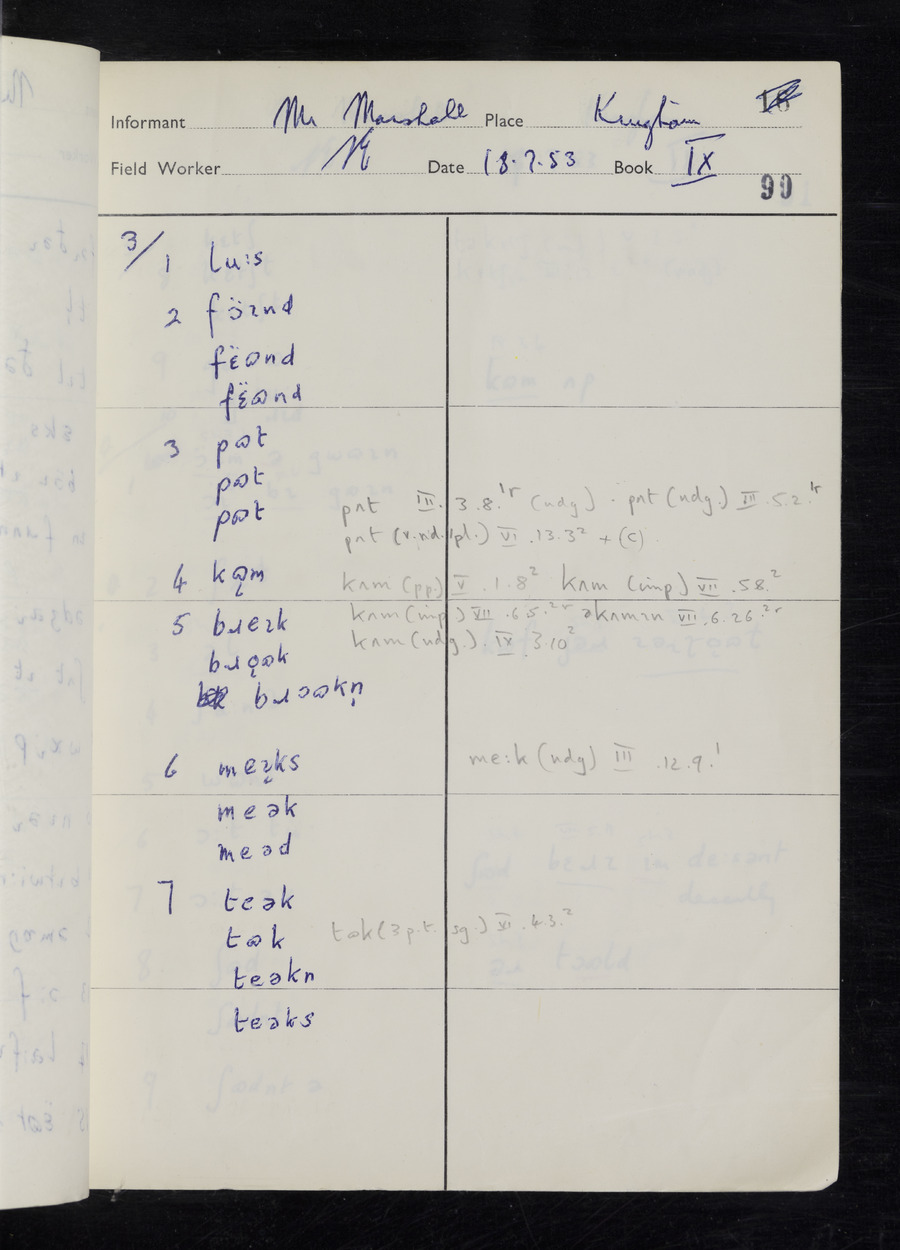 Informant Mr Marshall Place Kingham
Field Worker Date 18.7.53 Book IX
90
3/ 1 lu:s
2 fɔ̈ɪnd
fɛ̈ɷnd
fɛ̈ɷnd
3 pɷt
pɷt
pɷt
pʌt III. 3.8.¹ʳ (ndg) . pʌt (ndg.) III .5.2.¹ʳ
pʌt (v.nd. 1pl.) VI .13.3² + (c)
4 kɷ̨m kʌm (pp) V .1.8² kʌm (imp) VII .58.²
5 bɹeɪk kʌm (imp) VII .6.5.²ʳ əkʌmɪn VII .6.26.²ʳ
bɹɔ̨ɷk kʌm (ndg.) IX 3.10²
bɹɔɷkn̩
6 meɪ̨ks me:k (ndg) III .12.9.¹
meək
meəd
7 teək
tɷk tɷk (3 p.t. sg.) VI .43.²
teəkn
teəks